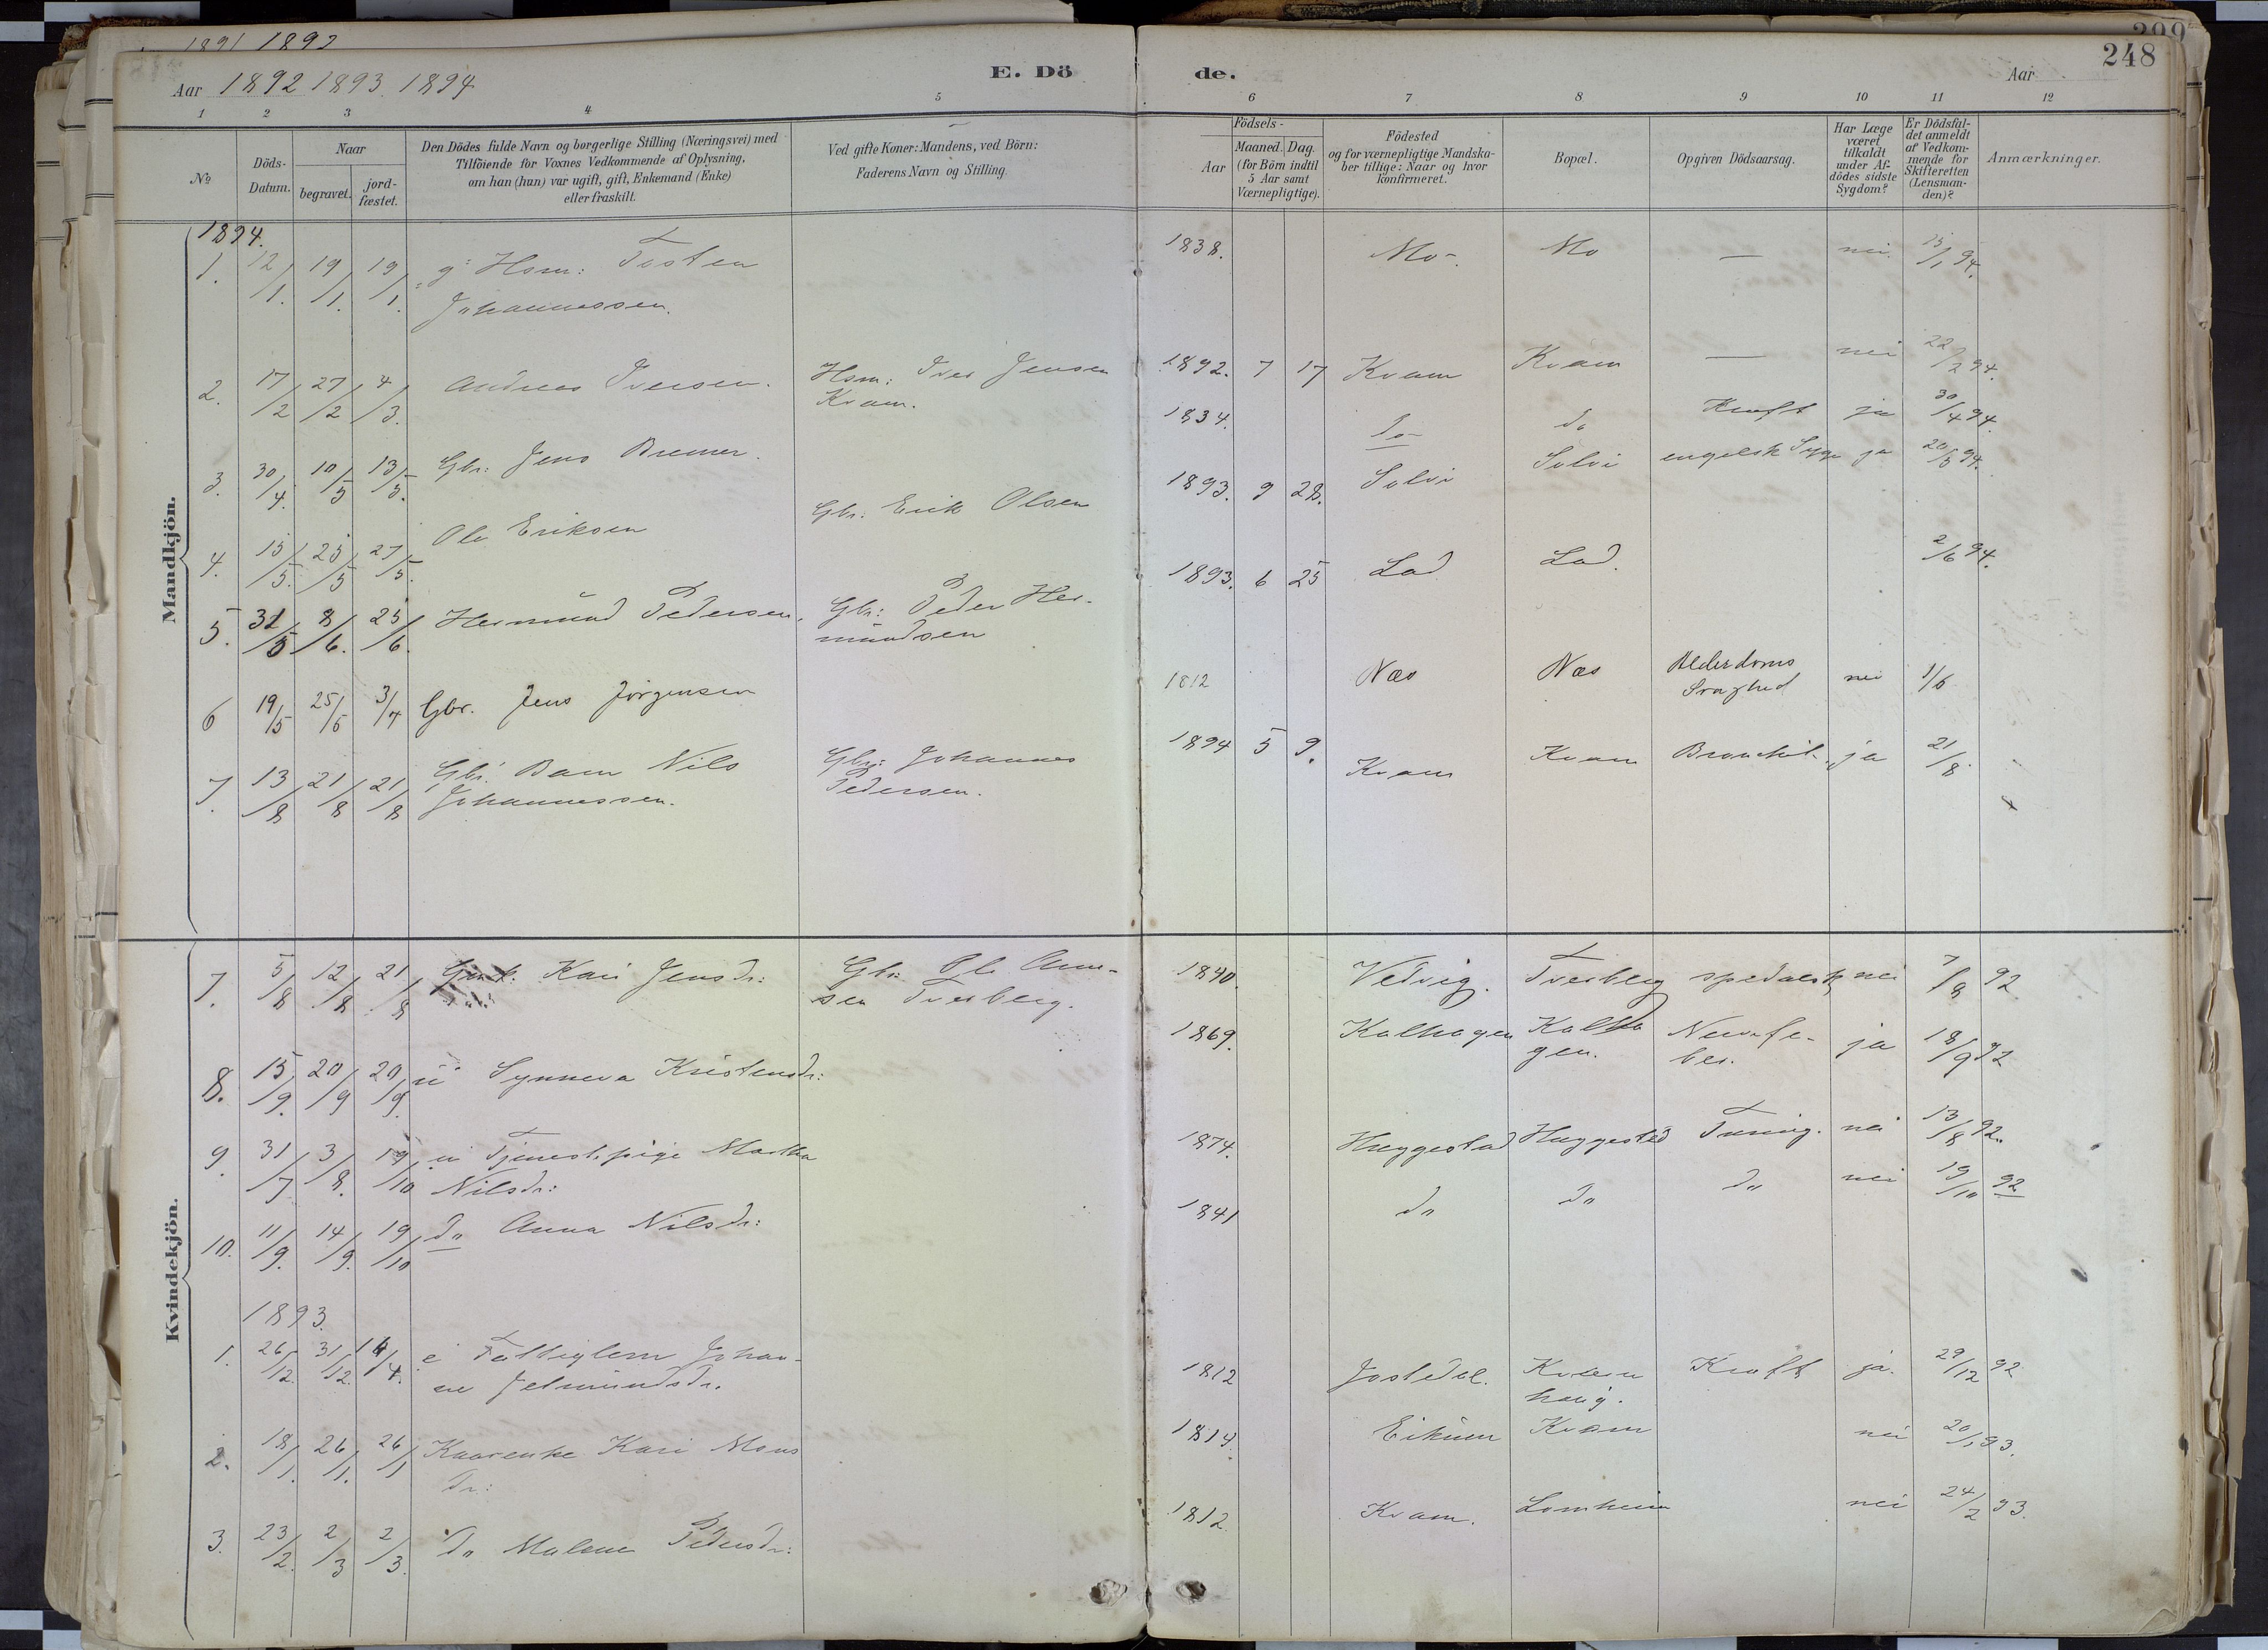 1891 1892
Aar 1892 1893 1894
E. Döde.
Aar
248
1 2 3 4 5 6 7 8. 9 10 11 12
№
Döds-Datum.
Naar
begravet.
jord-fæstet.
Den Dödes fulde Navn og borgerlige Stilling (Næringsvei) med
Tilföiende for Voxnes Vedkommende af Oplysning,
om han (hun) var ugift, gift, Enkemand (Enke)
eller fraskilt.
Ved gifte Koner: Mandens, ved Börn:
Faderens Navn og Stilling.
Födsels-
Aar
Maaned. Dag.
(for Börn indtil
5 Aar samt
Værnepligtige).
Födested
og for værnepligtige Mandska-
ber tillige: Naar og hvor
konfirmeret.
Bopæl.
Opgiven Dödsaarsag.
Har Læge
været
tilkaldt
under Af-
dödes sidste
Sygdom?
Er Dödsfal-
det anmeldt
af Vedkom-
mende for
Skifteretten
(Lensman-
den)?
Anmærkninger.
Mandkjön.
1894.
1. 12/1. 19/1. 19/1. g: Hsm: Tosten 1838. Mo. Mo — nei. 15/1 94.
Johannessen.
2. 17/2 27/2 4/3. Andreas Iversen. Hsm: Iver Jensen 1892. 7 17 Kvam Kvam — nei 22/2 94.
Kvam.
3. 30/4. 10/5 13/5. Gbr: Jens Bremer. 1834. do do Kræft ja 30/4 94.
4. 15/5. 25/5 27/5. Ole Eriksen Gbr: Erik Olsen 1893. 9 28. Solvi Solvi engelsk Syge ja 20/5 94.
5. 31/5 8/6. 25/6. Hermund Pedersen. Gbr: Peder Her- 1893. 6 25 Lad Lad. 2/6 94.
mundsen
6 19/5 25/5 3/7 Gbr. Jens Jörgensen 1812 Næs Næs Alderdoms nei 1/6
Svaghed
7. 13/8 21/8 21/8 Gbr. Barn Nils Gbr: Johannes 1894 5 9. Kvam Kvam Bronchit. ja 21/8.
Johannessen. Pedersen.
Kvindekjön.
7. 5/8 12/8 21/8 Kari Jensdr: Gbr: Ole 1840. Vedvig. Tverberg spedalsk nei 7/8 92.
sen Tverberg.
8. 15/9. 20/9 20/9. u Synneva Kristensdr: 1869. Kalhagen Kalha Nervefe- ja 18/9 92
gen. ber.
9. 31/7 3/8. 19/10 u Tjenestepige Martha 1874. Huggestad Huggestad Tæring. nei 13/8 92.
Nilsdr:
10. 11/9. 14/9. 19/10 do Anna Nilsdr: 1841 do do do nei 19/10 92
1893.
1. 26/12. 31/12. 14/4. e Fattiglem Johan- 1812 Jostedal. Kræft ja. 29/12 92
ne Jetmundsdr. haug.
2. 18/1. 26/1. 26/1 Kaarenke Kari Mons 1814. Eikum Kvam nei 20/1 93.
dr:
3. 23/2. 2/3 2/3. do Malene Pedersdr: 1812. Kvam. Lomheim nei 24/2 93.